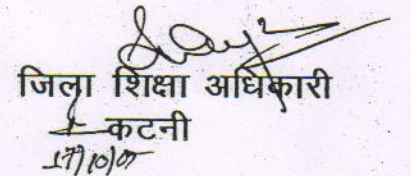 जिला शिक्षा अधिकारी
कटनी
17/10/07